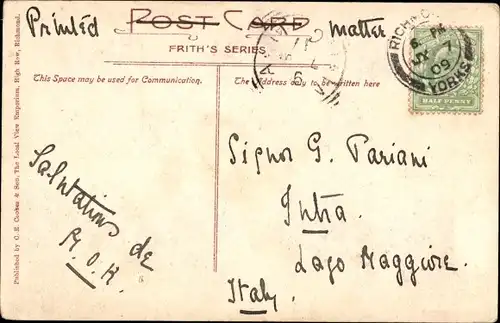 Printed POST CARD matter.
FRITH'S SERIES.
This Space may be used for Communication.
The Address only to be written here
HALF PENNY
YORKS
09
Signor G. Pariani
Intra.
Lago Maggiore.
Italy.
Salutations de
Published by C. E. Cookes & Son, The Local View Emporium, High Row, Richmond.